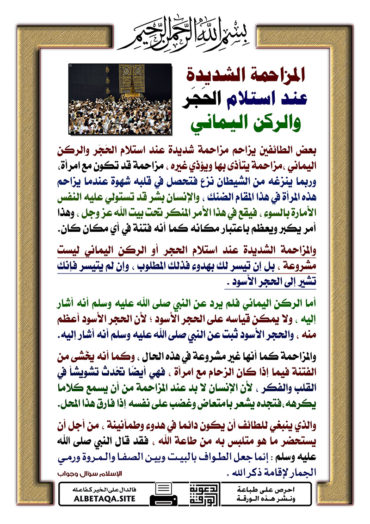 بسم الله الرحمن الرحيم
المزاحمة الشديدة
عند استلام الحَجَر
والركن اليماني
بعض الطائفين يزاحم مزاحمة شديدة عند استلام الحجر والركن
اليماني ، مزاحمة يتأذى بها ويؤذي غيره ، مزاحمة قد تكون مع امرأة ،
وربما ينزغه من الشيطان نزغ فتحصل في قلبه شهوة عندما يزاحم
هذه المرأة في هذا المقام الضنك ، والإنسان بشر قد تستولي عليه النفس
الأمارة بالسوء ، فيقع في هذا الأمر المنكر تحت بيت الله عز وجل ، وهذا
أمر يكبر ويعظم باعتبار مكانه كما أنه فتنة في أي مكان كان .
والمزاحمة الشديدة عند استلام الحجر أو الركن اليماني ليست
مشروعة ، بل إن تيسر لك بهدوء فذلك المطلوب ، وإن لم يتيسر فإنك
تشير إلى الحجر الأسود .
أما الركن اليماني فلم يرد عن النبي صلى الله عليه وسلم أنه أشار
إليه ، ولا يمكن قياسه على الحجر الأسود ؛ لأن الحجر الأسود أعظم
منه ، والحجر الأسود ثبت عن النبي صلى الله عليه وسلم أنه أشار إليه .
والمزاحمة كما أنها غير مشروعة في هذه الحال ، وكما أنه يخشى من
الفتنة فيما إذا كان الزحام مع امرأة ، فهي أيضا تحدث تشويشا في
القلب والفكر ، لأن الإنسان لا بد عند المزاحمة من أن يسمع كلاما
يكرهه ،فتجده يشعر بامتعاض وغضب على نفسه إذا فارق هذا المحل.
والذي ينبغي للطائف أن يكون دائما في هدوء وطمأنينة ، من أجل أن
يستحضر ما هو متلبس به من طاعة الله ، فقد قال النبي صلى الله
عليه وسلم : إنما جعل الطواف بالبيت وبين الصفا والمروة ورمي
الجمار لإقامة ذكر الله .
الإسلام سؤال وجواب
احرص على طباعة
ونشر هذه الورقة
الدعوية
الورقة
فالدال على الخير كفاعله
ALBETAQA.SITE